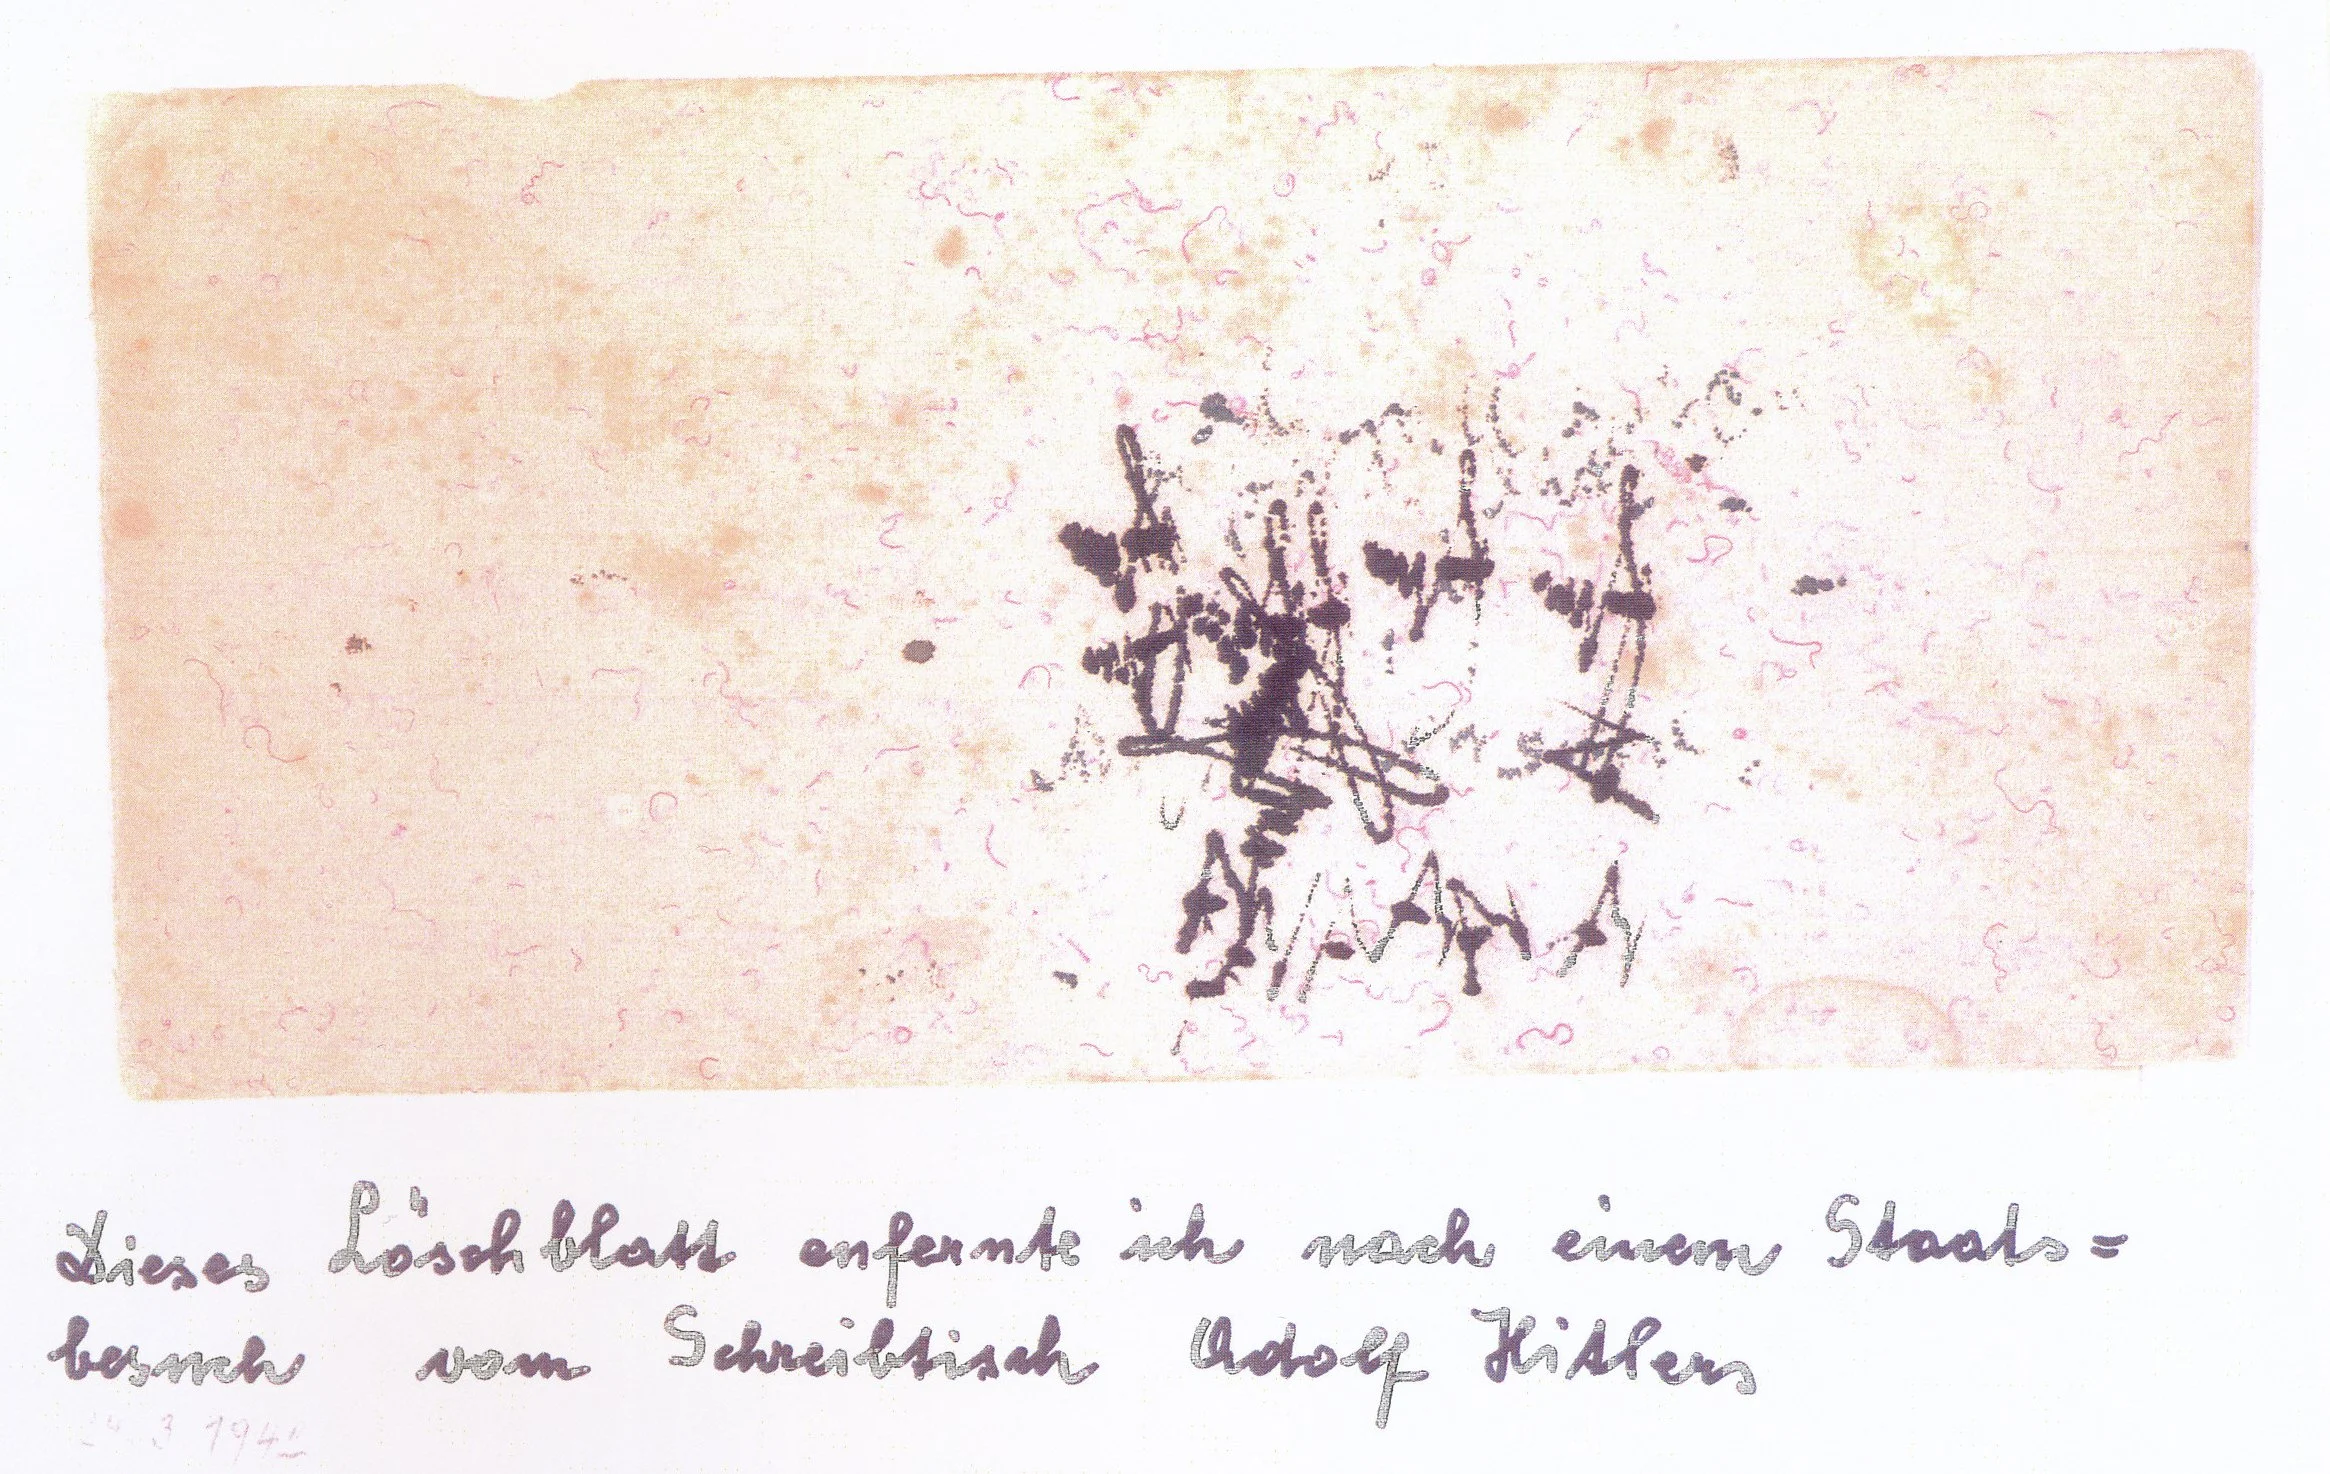 Dieses Löschblatt enfernte ich nach einem Staats=
besuch vom Schreibtisch Adolf Hitlers
3 194